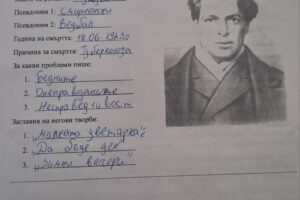 Псевдоним 1: Смирненски
Псевдоним 2: Ведбал
Година на смъртта: 18.06.1923г
Причина за смъртта: Туберкулоза
За какви проблеми пише:
1. Бедните
2. Онеправданите
3. Несправедливост
Заглавия на негови творби:
1. „Малката цветарка"
2. „Да бъде ден"
3. „Зимни вечери"